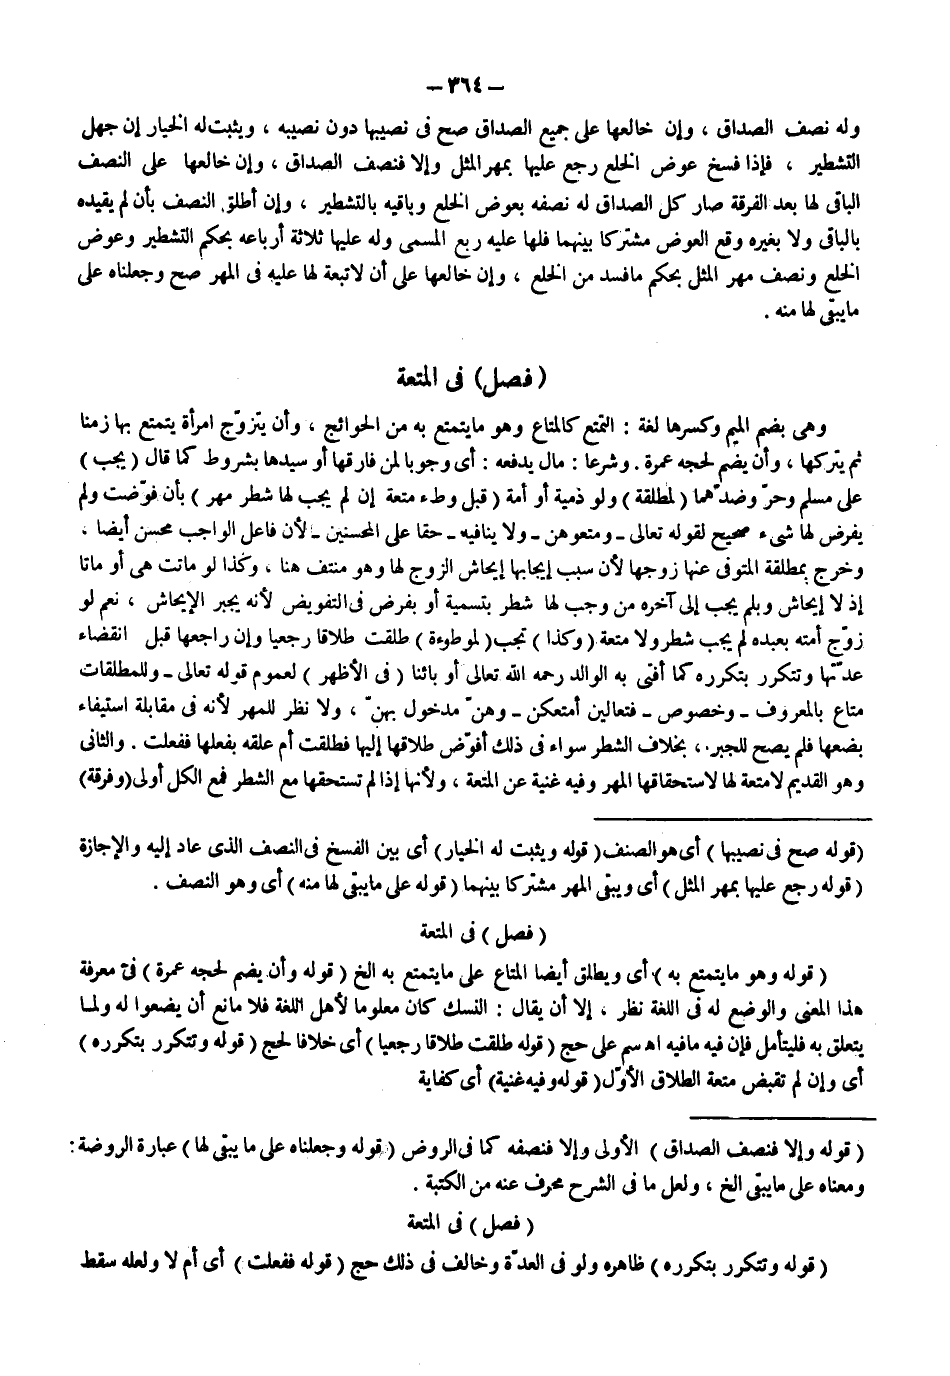 – ٣٦٤ –
وله نصف الصداق ، وإن خالعها على جميع الصداق صح فى نصيبها دون نصيبه ، ويثبت له الخيار إن جهل
التشطير ، فإذا فسخ عوض الخلع رجع عليها بمهر المثل وإلا فنصف الصداق ، وإن خالعها على النصف
الباقى لها بعد الفرقة صار كل الصداق له نصفه بعوض الخلع وباقيه بالتشطير ، وإن أطلق النصف بأن لم يقيده
بالباقى ولا بغيره وقع العوض مشتركا بينهما فلها عليه ربع المسمى وله عليها ثلاثة أرباعه بحكم التشطير وعوض
الخلع ونصف مهر المثل بحكم مافسد من الخلع ، وإن خالعها على أن لاتبعة لها عليه فى المهر صح وجعلناه على
مايبقى لها منه .
( فصل) فى المتعة
وهى بضم الميم وكسرها لغة : التمتع كالمتاع وهو مايتمتع به من الحوائج ، وأن يتزوّج امرأة يتمتع بها زمنا
ثم يتركها ، وأن يضم لحجه عمرة . وشرعا : مال يدفعه : أى وجوبا لمن فارقها أو سيدها بشروط كما قال ( يجب )
على مسلم وحرّ وضدّهما ( لمطلقة ) ولو ذمية أو أمة ( قبل وطء متعة إن لم يجب لها شطر مهر ) بأن فوّضت ولم
يفرض لها شىء صحيح لقوله تعالى ـ ومتعوهن ـ ولا ينافيه ـ حقا على المحسنين ـ لأن فاعل الواجب محسن أيضا ،
وخرج بمطلقة المتوفى عنها زوجها لأن سبب إيجابها إيحاش الزوج لها وهو منتف هنا ، وكذا لو ماتت هى أو ماتا
إذ لا إيحاش وبلم يجب إلى آخره من وجب لها شطر بتسمية أو بفرض فى التفويض لأنه يجبر الإيحاش ، نعم لو
زوّج أمته بعبده لم يجب شطر ولا متعة ( وكذا ) تجب ( لموطوءة ) طلقت طلاقا رجعيا وإن راجعها قبل انقضاء
عدتها وتتكرر بتكرره كما أفتى به الوالد رحمه الله تعالى أو بائنا ( فى الأظهر ) لعموم قوله تعالى ـ وللمطلقات
متاع بالمعروف ـ وخصوص ـ فتعالين أمتعكن ـ وهنّ مدخول بهنّ ، ولا نظر للمهر لأنه فى مقابلة استيفاء
بضعها فلم يصح للجبر ، بخلاف الشطر سواء فى ذلك أفوّض طلاقها إليها فطلقت أم علقه بفعلها ففعلت . والثانى
وهو القديم لامتعة لها لاستحقاقها المهر وفيه غنية عن المتعة ، ولأنها إذا لم تستحقها مع الشطر فمع الكل أولى (وفرقة)
(قوله صح فى نصيبها ) أى هو الصنف ( قوله ويثبت له الخيار) أى بين الفسخ فى النصف الذى عاد إليه والإجازة
( قوله رجع عليها بمهر المثل ) أى ويبقى المهر مشتركا بينهما ( قوله على مايبقى لها منه ) أى وهو النصف .
( فصل ) فى المتعة
( قوله وهو مايتمتع به ) أى ويطلق أيضا المتاع على مايتمتع به الخ ( قوله وأن يضم لحجه عمرة ) فى معرفة
هذا المعنى والوضع له فى اللغة نظر ، إلا أن يقال : النسك كان معلوما لأهل اللغة فلا مانع أن يضعوا له ولما
يتعلق به فليتأمل فإن فيه مافيه اه سم على حج ( قوله طلقت طلاقا رجعيا ) أى خلافا لحج ( قوله وتتكرر بتكرره )
أى وإن لم تقبض متعة الطلاق الأوّل ( قوله وفيه غنية) أى كفاية
( قوله وإلا فنصف الصداق ) الأولى وإلا فنصفه كما فى الروض ( قوله وجعلناه على ما يبقى لها ) عبارة الروضة :
ومعناه على مايبقى الخ ، ولعل ما فى الشرح محرف عنه من الكتبة .
( فصل ) فى المتعة
( قوله وتتكرر بتكرره ) ظاهره ولو فى العدّة وخالف فى ذلك حج ( قوله ففعلت ) أى أم لا ولعله سقط